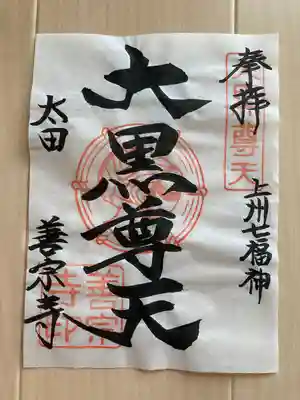 奉拝
上州七福神
大黒尊天
太田
善宗寺
大黒尊天
善宗寺印